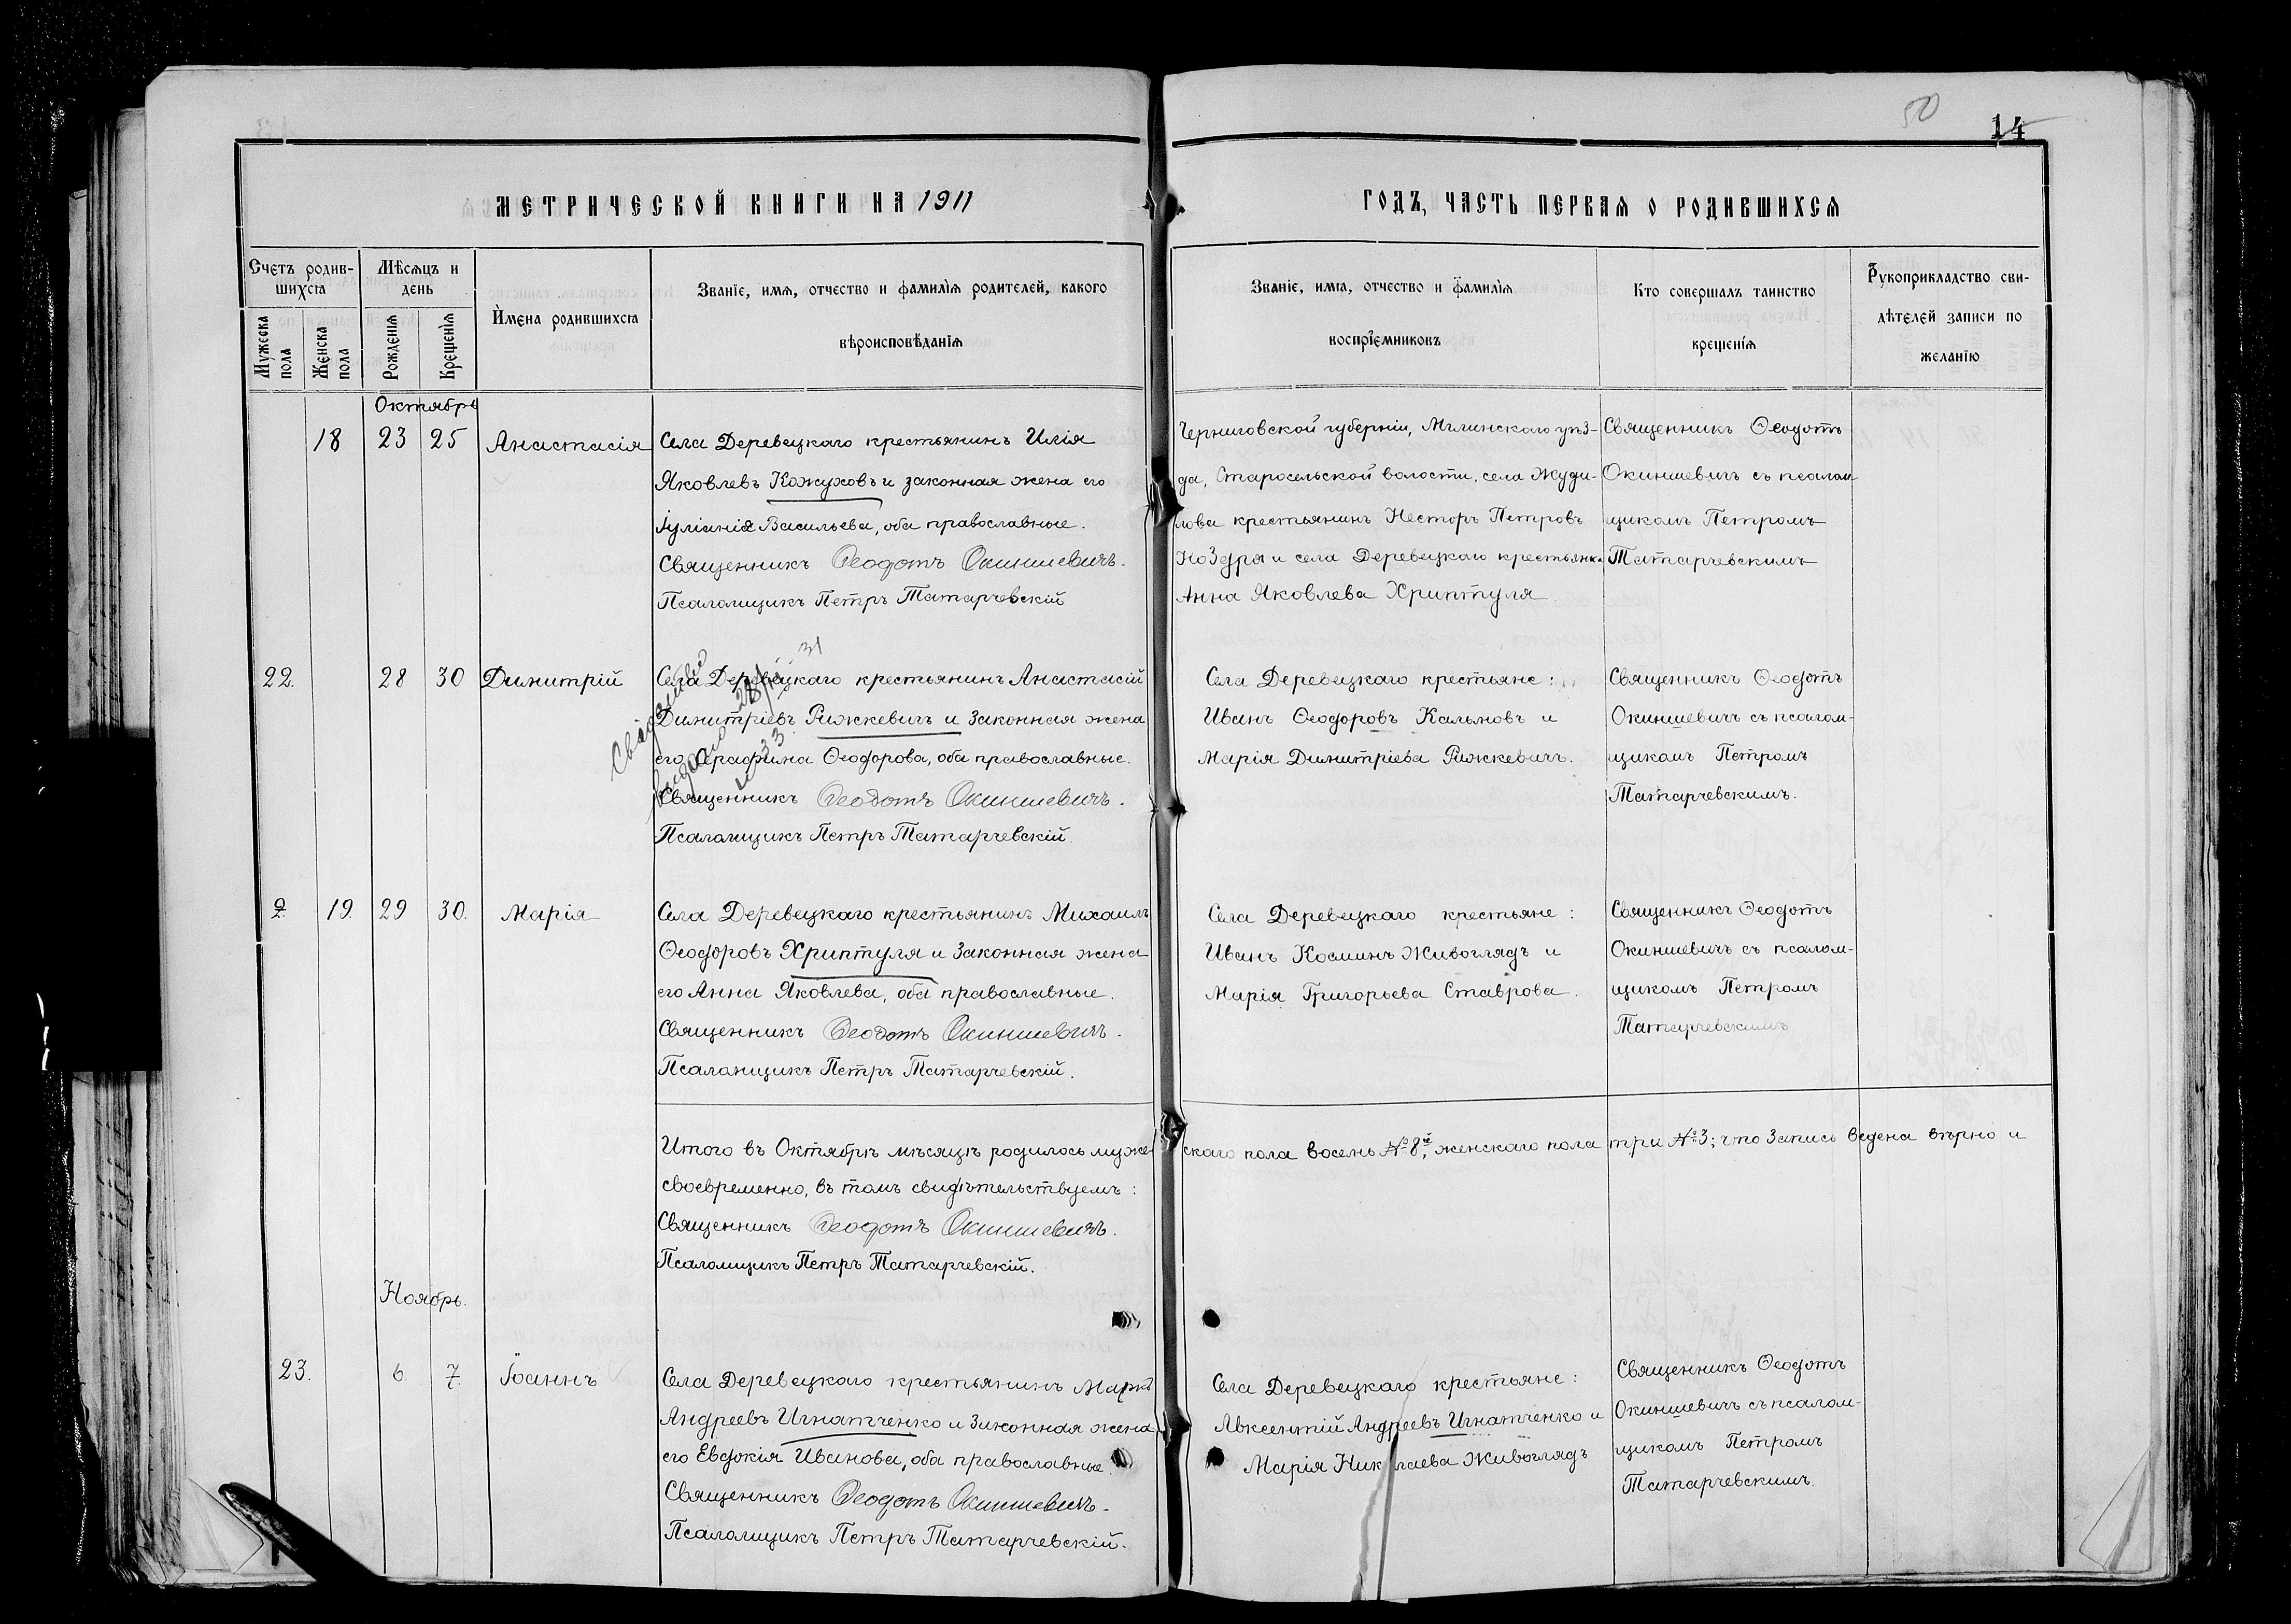 50
14
МЕТРИЧЕСКОЙ КНИГИ НА 1911
ГОДЪ, ЧАСТЬ ПЕРВАЯ О РОДИВШИХСЯ
Счетъ родив-
шихся
Мужеска
пола
Женска
пола
Мѣсяцъ и
день
Рожденія
Крещенія
Имена родившихся
Званіе, имя, отчество и фамилія родителей, какого
вѣроисповѣданія
Званіе, имя, отчество и фамилія
воспріемниковъ
Кто совершалъ таинство
крещенія
Рукоприкладство сви-
дѣтелей записи по
желанію
Октябрь
18 23 25 Анастасія
Села Деревецкаго крестьянинъ Илія
Яковлевъ Кожуховъ и законная жена его
Іуліанія Васильева, оба православные.
Священникъ Ѳеодотъ Окиншевичъ.
Псаломщикъ Петръ Татарчевскій
Черниговской губерніи, Мглинскаго уѣз-
да, Старосельской волости, села Жуди-
лова крестьянинъ Несторъ Петровъ
Ноздря и села Деревецкаго крестьянка
Анна Яковлева Хриптуля
Священникъ Ѳеодотъ
Окиншевичъ съ псалом-
щикомъ Петромъ
Татарчевскимъ
22. 28 30 Димитрій
Села Деревецкаго крестьянинъ Анастасій
Димитріевъ Рижкевичъ и законная жена
его Серафима Ѳеодорова, оба православные.
Священникъ Ѳеодотъ Окиншевичъ.
Псаломщикъ Петръ Татарчевскій.
Села Деревецкаго крестьяне:
Иванъ Ѳеодоровъ Кальновъ и
Марія Димитріева Рижкевичъ.
Священникъ Ѳеодотъ
Окиншевичъ съ псалом-
щикомъ Петромъ
Татарчевскимъ.
2. 19. 29 30. Марія
Села Деревецкаго крестьянинъ Михаилъ
Ѳеодоровъ Хриптуля и законная жена
его Анна Яковлева, оба православные.
Священникъ Ѳеодотъ Окиншевичъ.
Псаломщикъ Петръ Татарчевскій.
Села Деревецкаго крестьяне:
Иванъ Косминъ Живоглядъ и
Марія Григорьева Ставрова.
Священникъ Ѳеодотъ
Окиншевичъ съ псалом-
щикомъ Петромъ
Татарчевскимъ
Итого въ Октябрѣ мѣсяцѣ родилось муже-скаго пола восемь №8й, женскаго пола три №3; что запись ведена вѣрно и
своевременно, въ томъ свидѣтельствуемъ:
Священникъ Ѳеодотъ Окиншевичъ.
Псаломщикъ Петръ Татарчевскій.
Ноябрь.
23. 6. 7. Іоаннъ
Села Деревецкаго крестьянинъ Маркъ
Андреевъ Игнатченко и законная жена
его Евдокія Иванова, оба православные.
Священникъ Ѳеодотъ Окиншевичъ.
Псаломщикъ Петръ Татарчевскій.
Села Деревецкаго крестьяне:
Авксентій Андреевъ Игнатченко и
Марія Николаева Живоглядъ
Священникъ Ѳеодотъ
Окиншевичъ съ псалом-
щикомъ Петромъ
Татарчевскимъ.